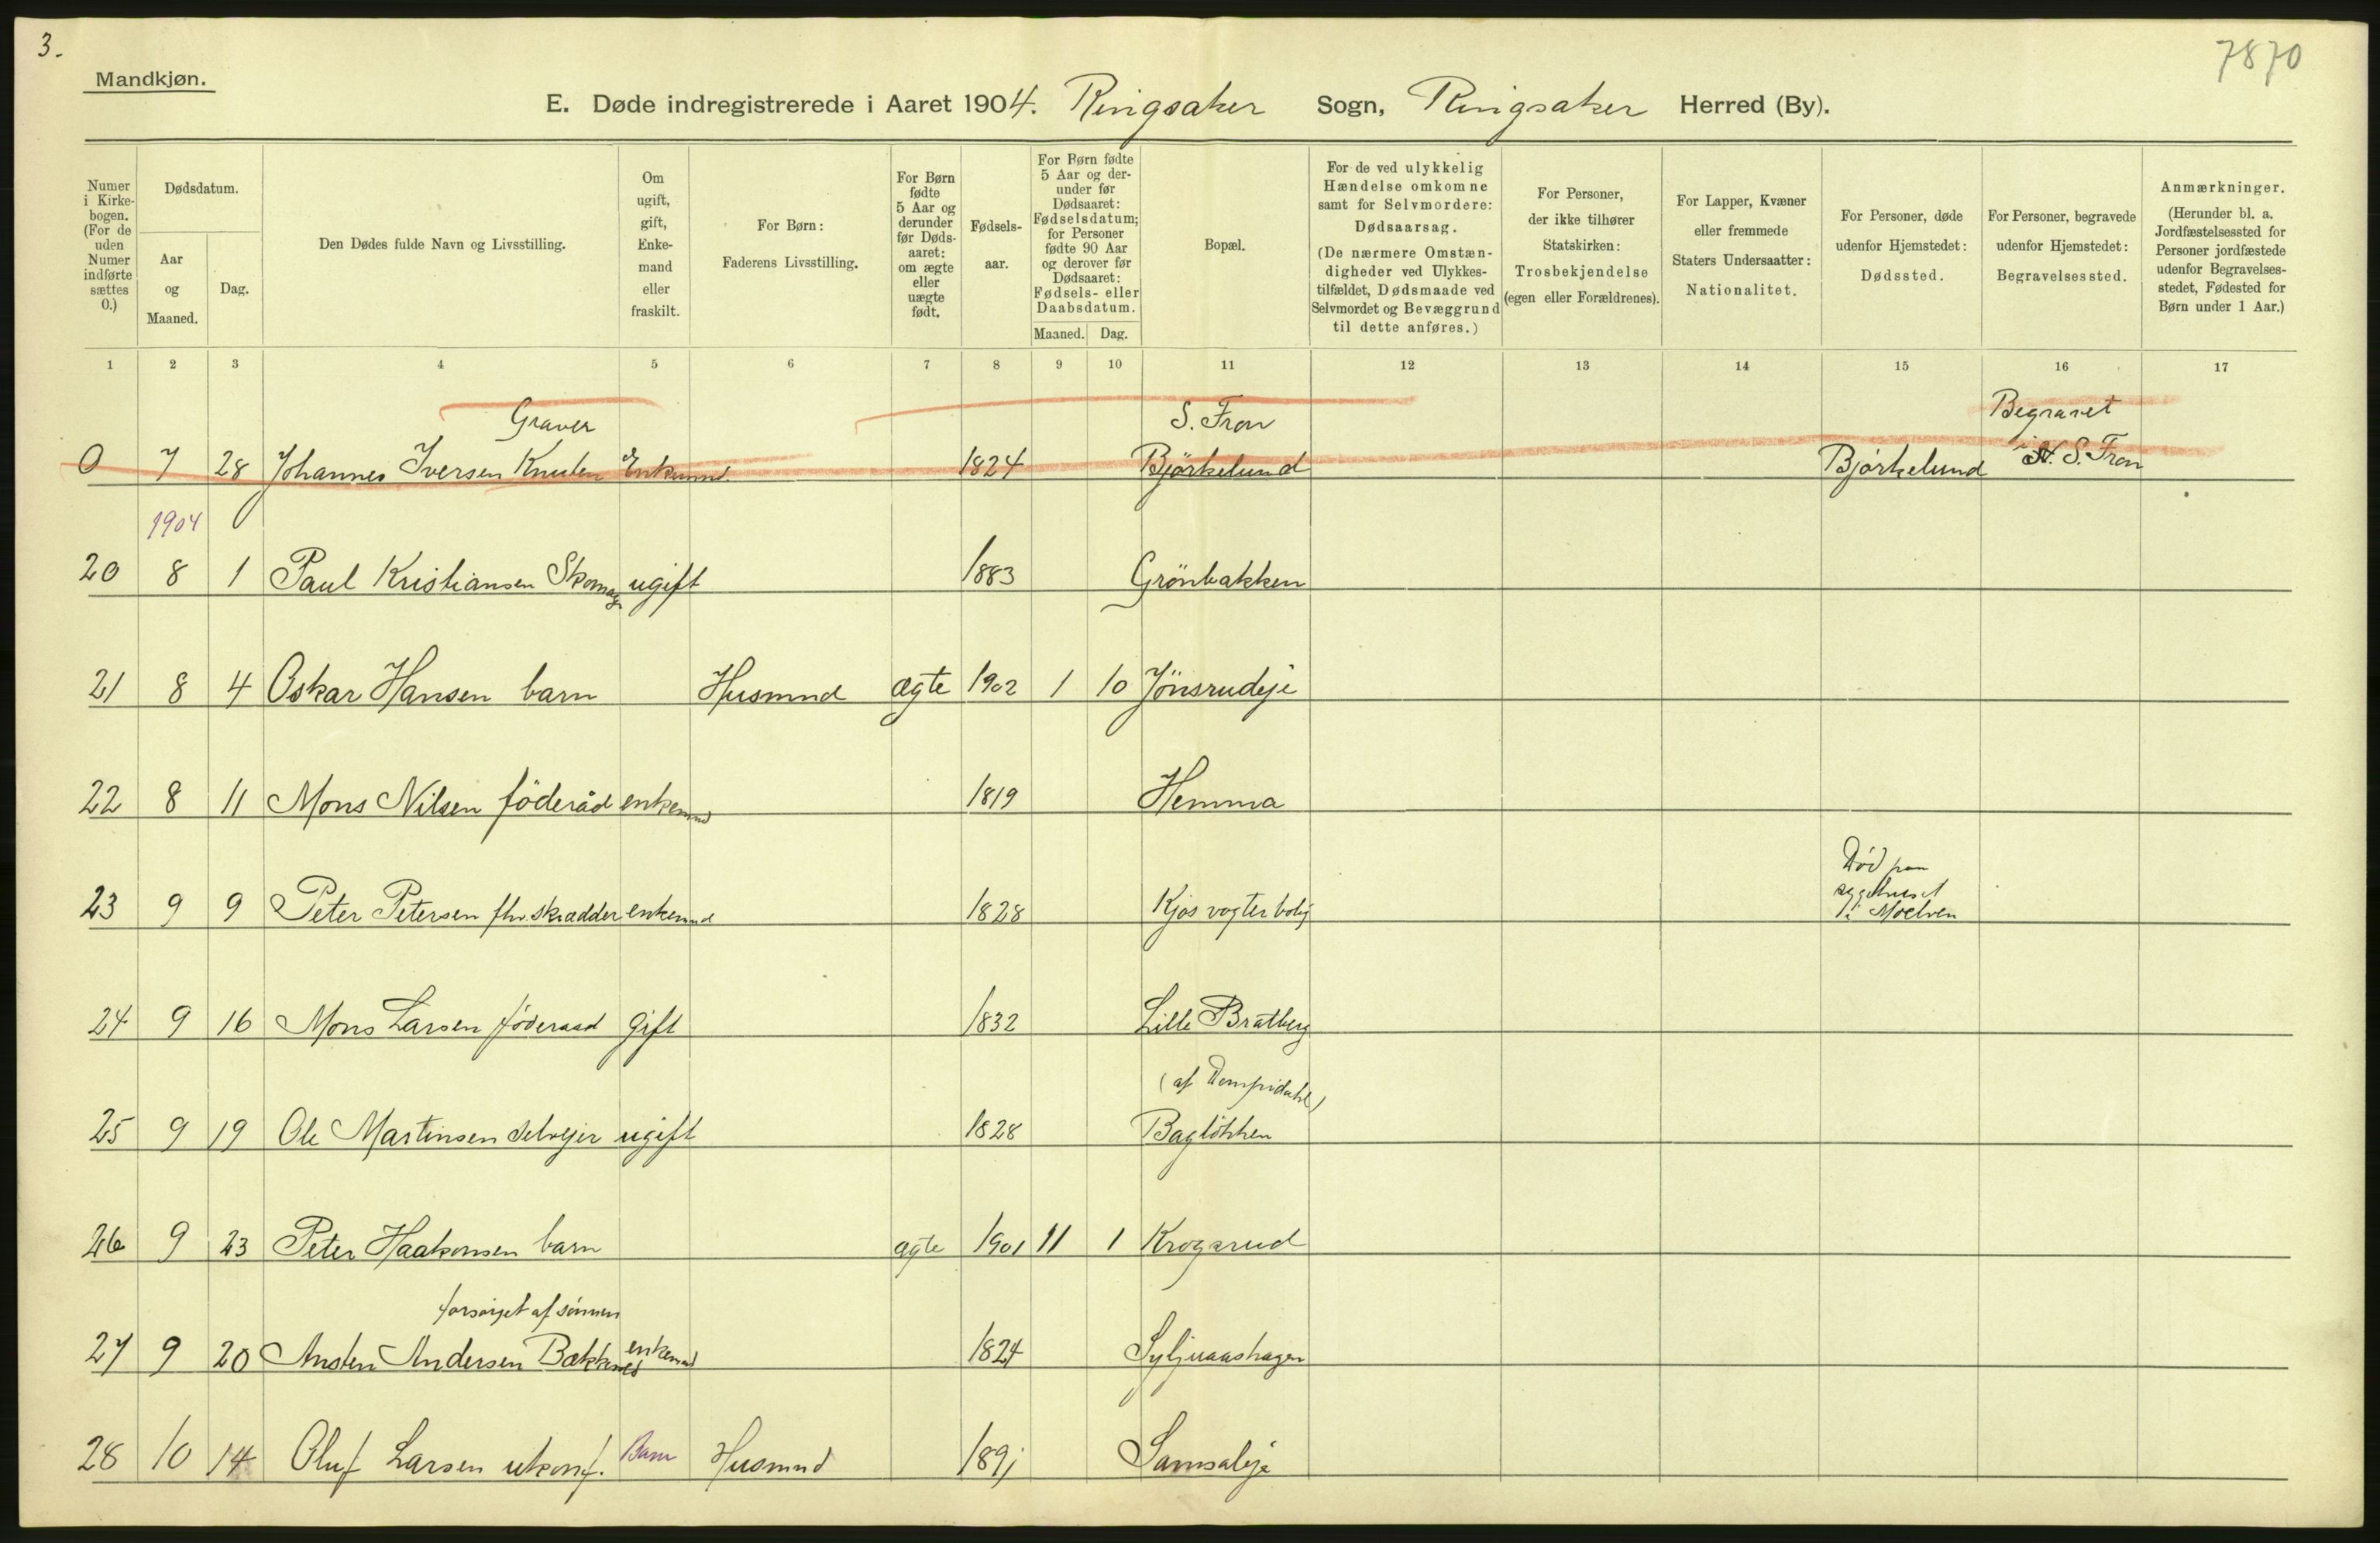 3.
7870
Mandkjøn.
E. Døde indregistrerede i Aaret 1904. Ringsaker Sogn, Ringsaker Herred (By).
Numer i Kirke-bogen. (For de uden Numer indførte sættes 0.)
Dødsdatum.
Aar og Maaned.
Dag.
Den Dødes fulde Navn og Livsstilling.
Om ugift, gift, Enke-mand eller fraskilt.
For Børn: Faderens Livsstilling.
For Børn fødte 5 Aar og derunder før Døds-aaret: om ægte eller uægte født.
Fødsels-aar.
For Børn fødte 5 Aar og der-under før Dødsaaret: Fødselsdatum; for Personer fødte 90 Aar og derover før Dødsaaret: Fødsels- eller Daabsdatum.
Maaned. Dag.
Bopæl.
For de ved ulykkelig Hændelse omkomne samt for Selvmordere: Dødsaarsag. (De nærmere Omstæn-digheder ved Ulykkes-tilfældet, Dødsmaade ved Selvmordet og Bevæggrund til dette anføres.)
For Personer, der ikke tilhører Statskirken: Trosbekjendelse (egen eller Forældrenes).
For Lapper, Kvæner eller fremmede Staters Undersaatter: Nationalitet.
For Personer, døde udenfor Hjemstedet: Dødssted.
For Personer, begravede udenfor Hjemstedet: Begravelsessted.
Anmærkninger. (Herunder bl. a. Jordfæstelsessted for Personer jordfæstede udenfor Begravelses-stedet, Fødested for Børn under 1 Aar.)
1 2 3 4 5 6 7 8 9 10 11 12 13 14 15 16 17
Graver S. Fron Begravet
0 7 28 Johannes Iversen Knuten Enkemnd. 1824 Bjørkelund Bjørkelund i S. Fron
1904
20 8 1 Paul Kristiansen Skomag ugift 1883 Grönbakken
21 8 4 Oskar Hansen barn Husmnd ægte 1902 1 10 Jönsrudeje
22 8 11 Mons Nilsen föderåd enkemnd 1819 Hemma
Död paa
sygehuset
23 9 9 Peter Petersen fhv. skrædder enkemnd 1828 Kjos vogterbolig i Moelven
24 9 16 Mons Larsen föderaad gift 1832 Lille Bratberg
(af
25 9 19 Ole Martinsen selvejer ugift 1828 Baglökken
26 9 23 Peter Haakonsen barn ægte 1901 11 1 Krogsrud
forsörget af sönnen
27 9 20 Ansten Andersen enkemnd 1824 Syljuaashagen
28 10 14 Oluf Larsen ukonf. Barn Husmnd Samsaleje